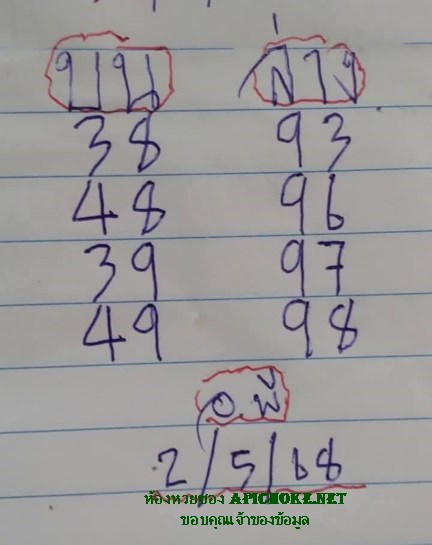 บน ล่าง
38 93
48 96
39 97
49 98
อ.พี
2/5/68
ห้องหวยของ APICHOKE.NET
ขอบคุณเจ้าของข้อมูล